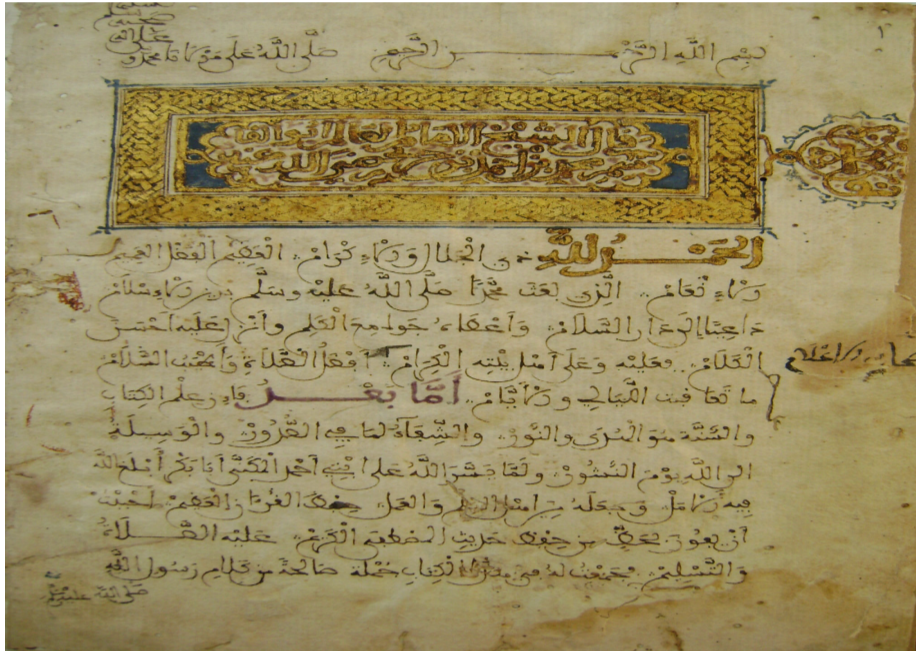 بسم الله الرحمن الرحيم صلى الله على مولانا محمد
قال الشيخ الامام
الحمد لله ذي الجلال والاكرام الفضل العميم
والانعام الذي بعث محمدا صلى الله عليه وسلم بدين الاسلام
داعيا الى دار السلام واعطاه جوامع الكلم وانزل عليه احسن
الكلام فعليه وعلى اهل بيته الكرام افضل الصلاة واطيب السلام
ما تعاقبت الليالي والايام أما بعد فان علم الكتاب
والسنة هو الهدى والنور والشفاء لما في الصدور والوسيلة
الى الله يوم النشور ولما يسر الله على ابني احمد المكنى ابا بكر ابلغ الله
فيه الامل وجعله من اهل العلم والعمل حفظ القرءان العظيم احببت
أن يفوز بحظ من حفظ حديث المصطفى الكريم عليه الصلاة
والتسليم فجمعت له في هذا الكتاب جملة صالحة من كلام رسول الله
صلى الله عليه وسلم